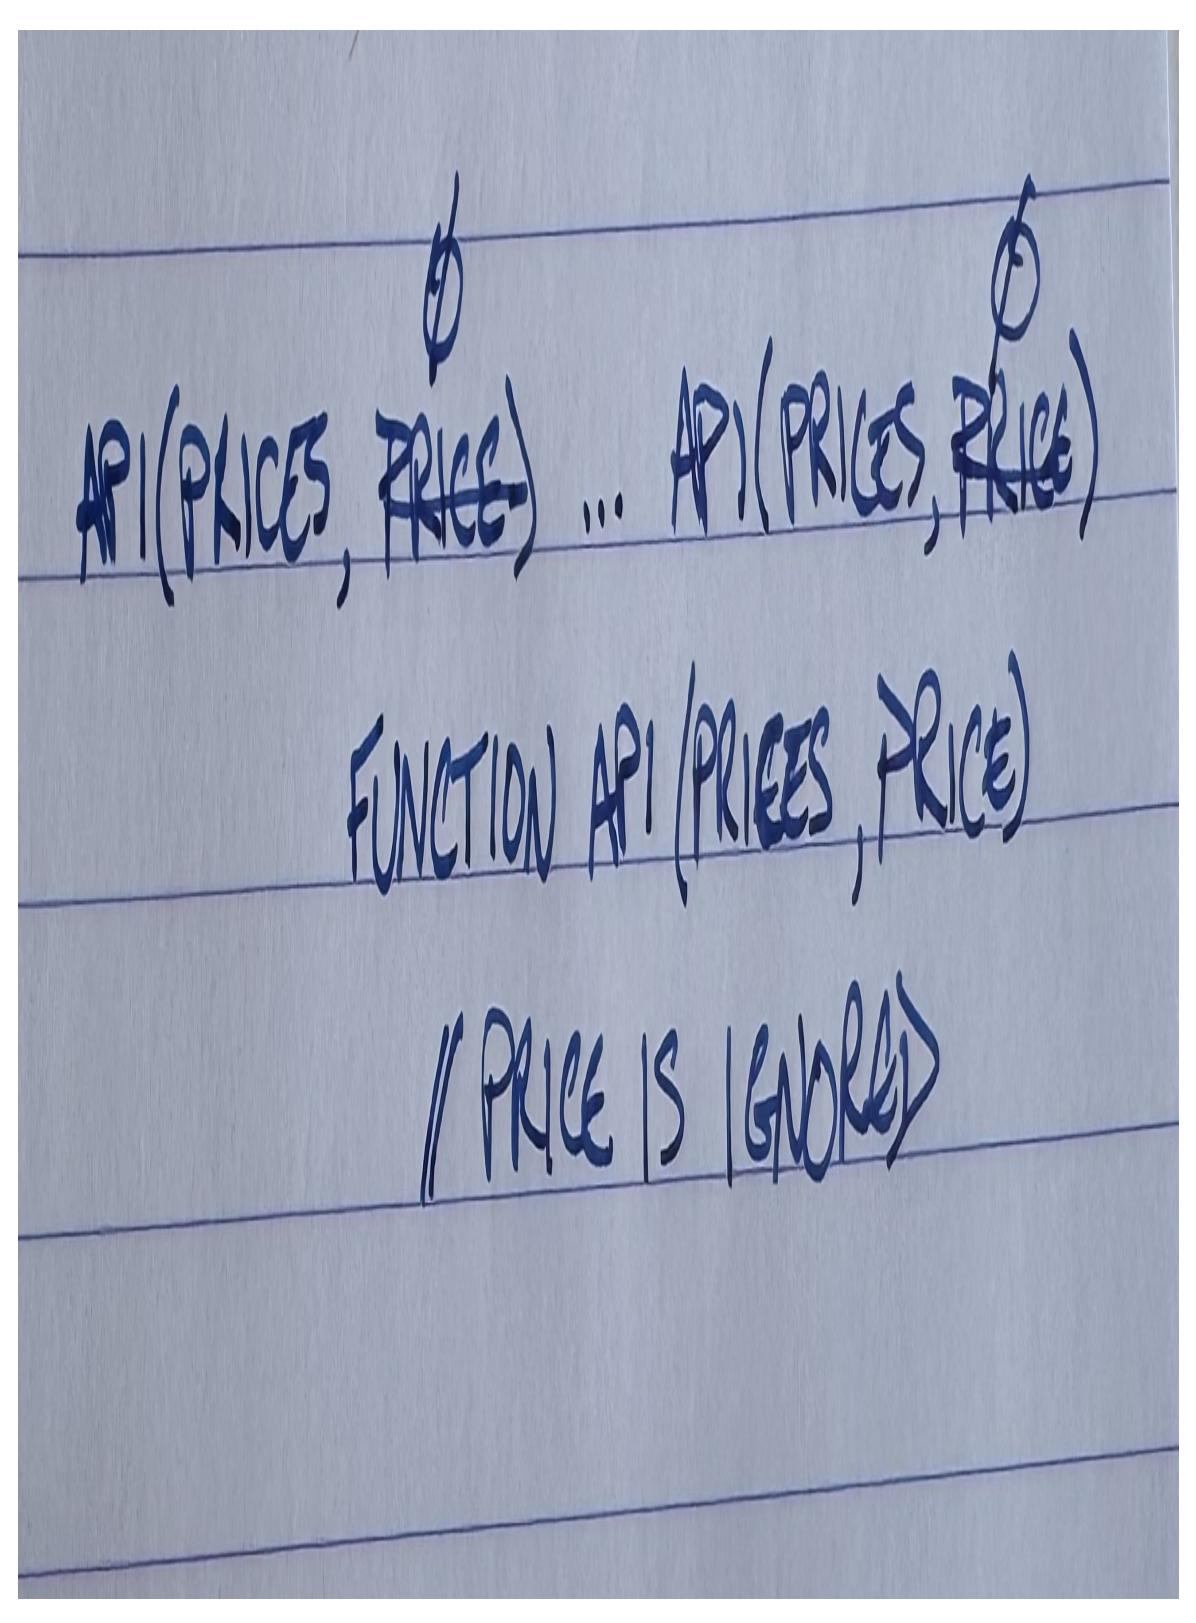 Ø Ø
API(PRICES, PRICE) ... API(PRICES, PRICE)
FUNCTION API (PRICES, PRICE)
// PRICE IS IGNORED